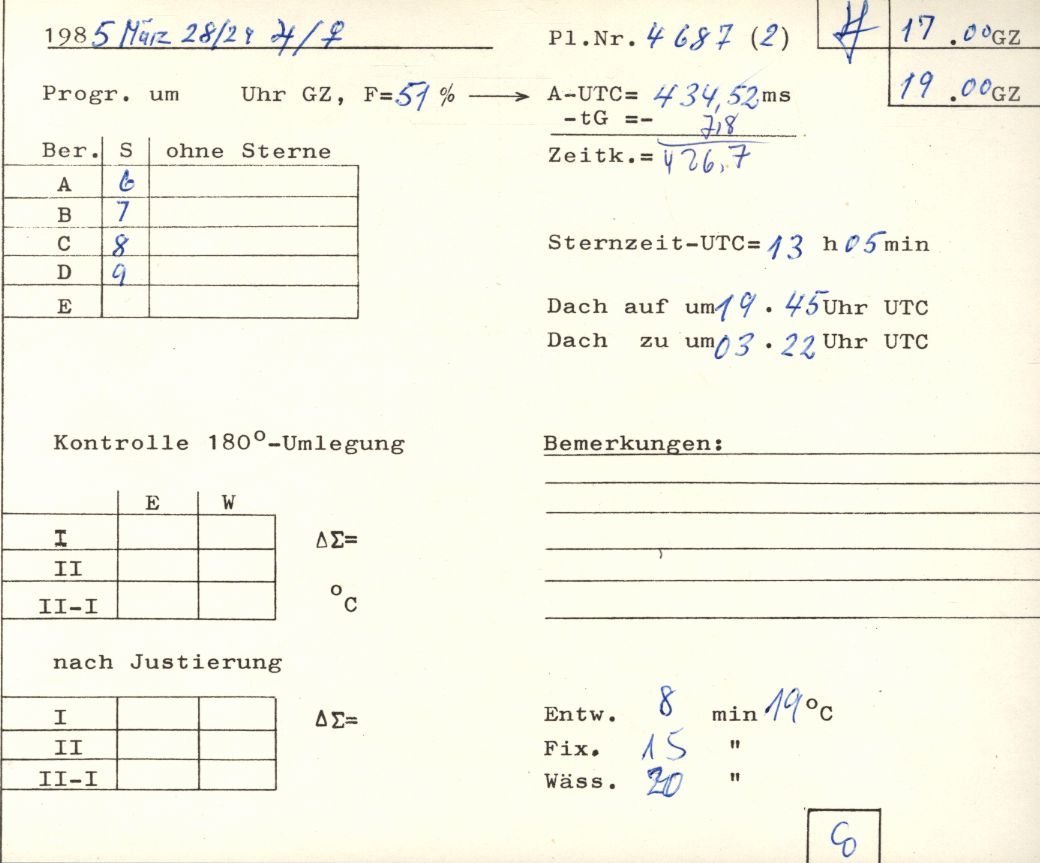 1985 März 28/29 ♃/♀
Pl.Nr. 4687 (2)
17.00GZ
19.00GZ
Progr. um Uhr GZ, F=51% ⟶ A-UTC= 434,52ms
-tG =- 7,8
Zeitk.= 426,7
Ber. S ohne Sterne
A 6
B 7
C 8
D 9
E
Sternzeit-UTC=13 h05min
Dach auf um19.45Uhr UTC
Dach zu um03.22Uhr UTC
Kontrolle 180°-Umlegung
E W
I ΔΣ=
II
II-I °C
nach Justierung
I ΔΣ=
II
II-I
Bemerkungen:
Entw. 8 min 19°C
Fix. 15 "
Wäss. 20 "